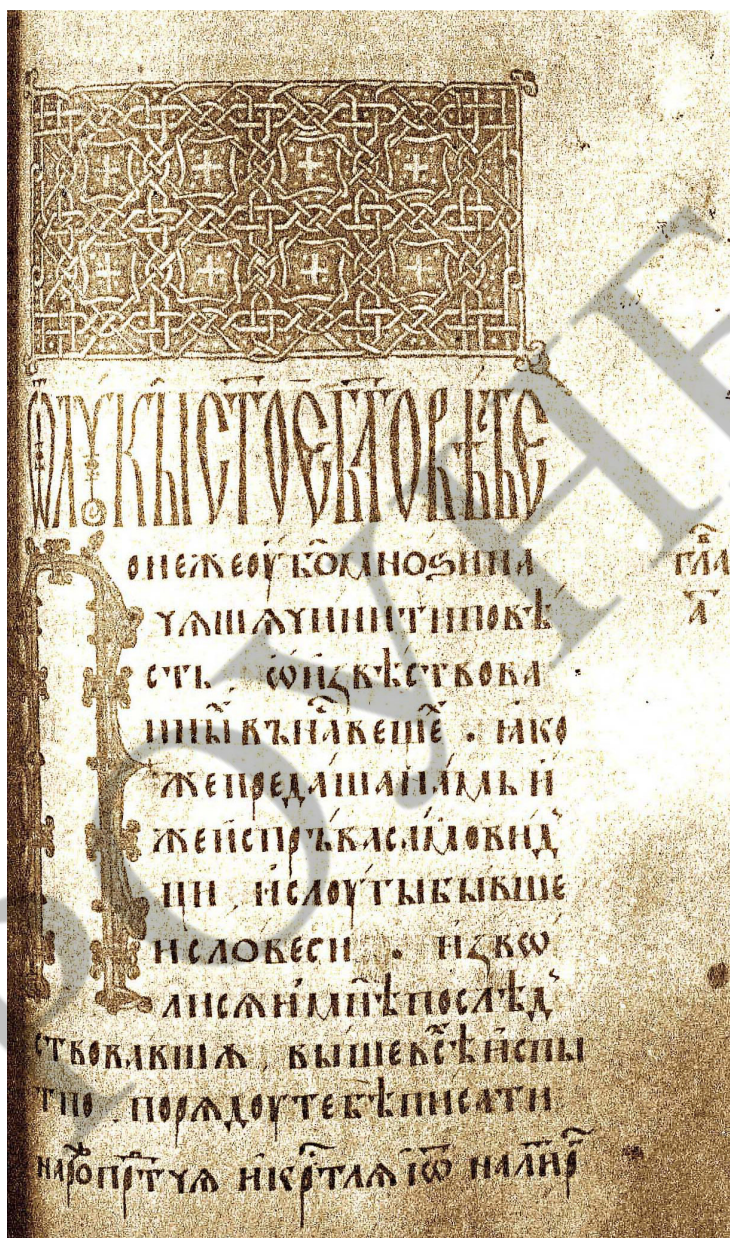 ѿ лꙋкы ст҃ое бл҃говѣ́т҃е
Понеже оу҆бѡ мноѕи на
чѧшѧ чинити повѣ
сть ѡ҆и҆звѣствова
нны̑ въ на̑ веще̑ . ꙗ҆ко
же предаша намь и҆
же и҆спръва самовид
ци и҆слоугы бывше
и҆словеси . и҆зво
лисѧ и҆мн̑ѣ послѣд
ствовавшѧ выше всѣ и҆спы
тно порѧдоу тебѣ писати
гла҃
в҃
а҃